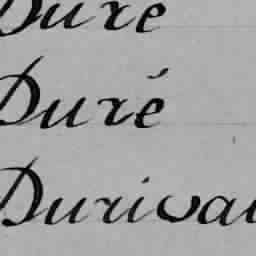 Duré
Duré
Durival